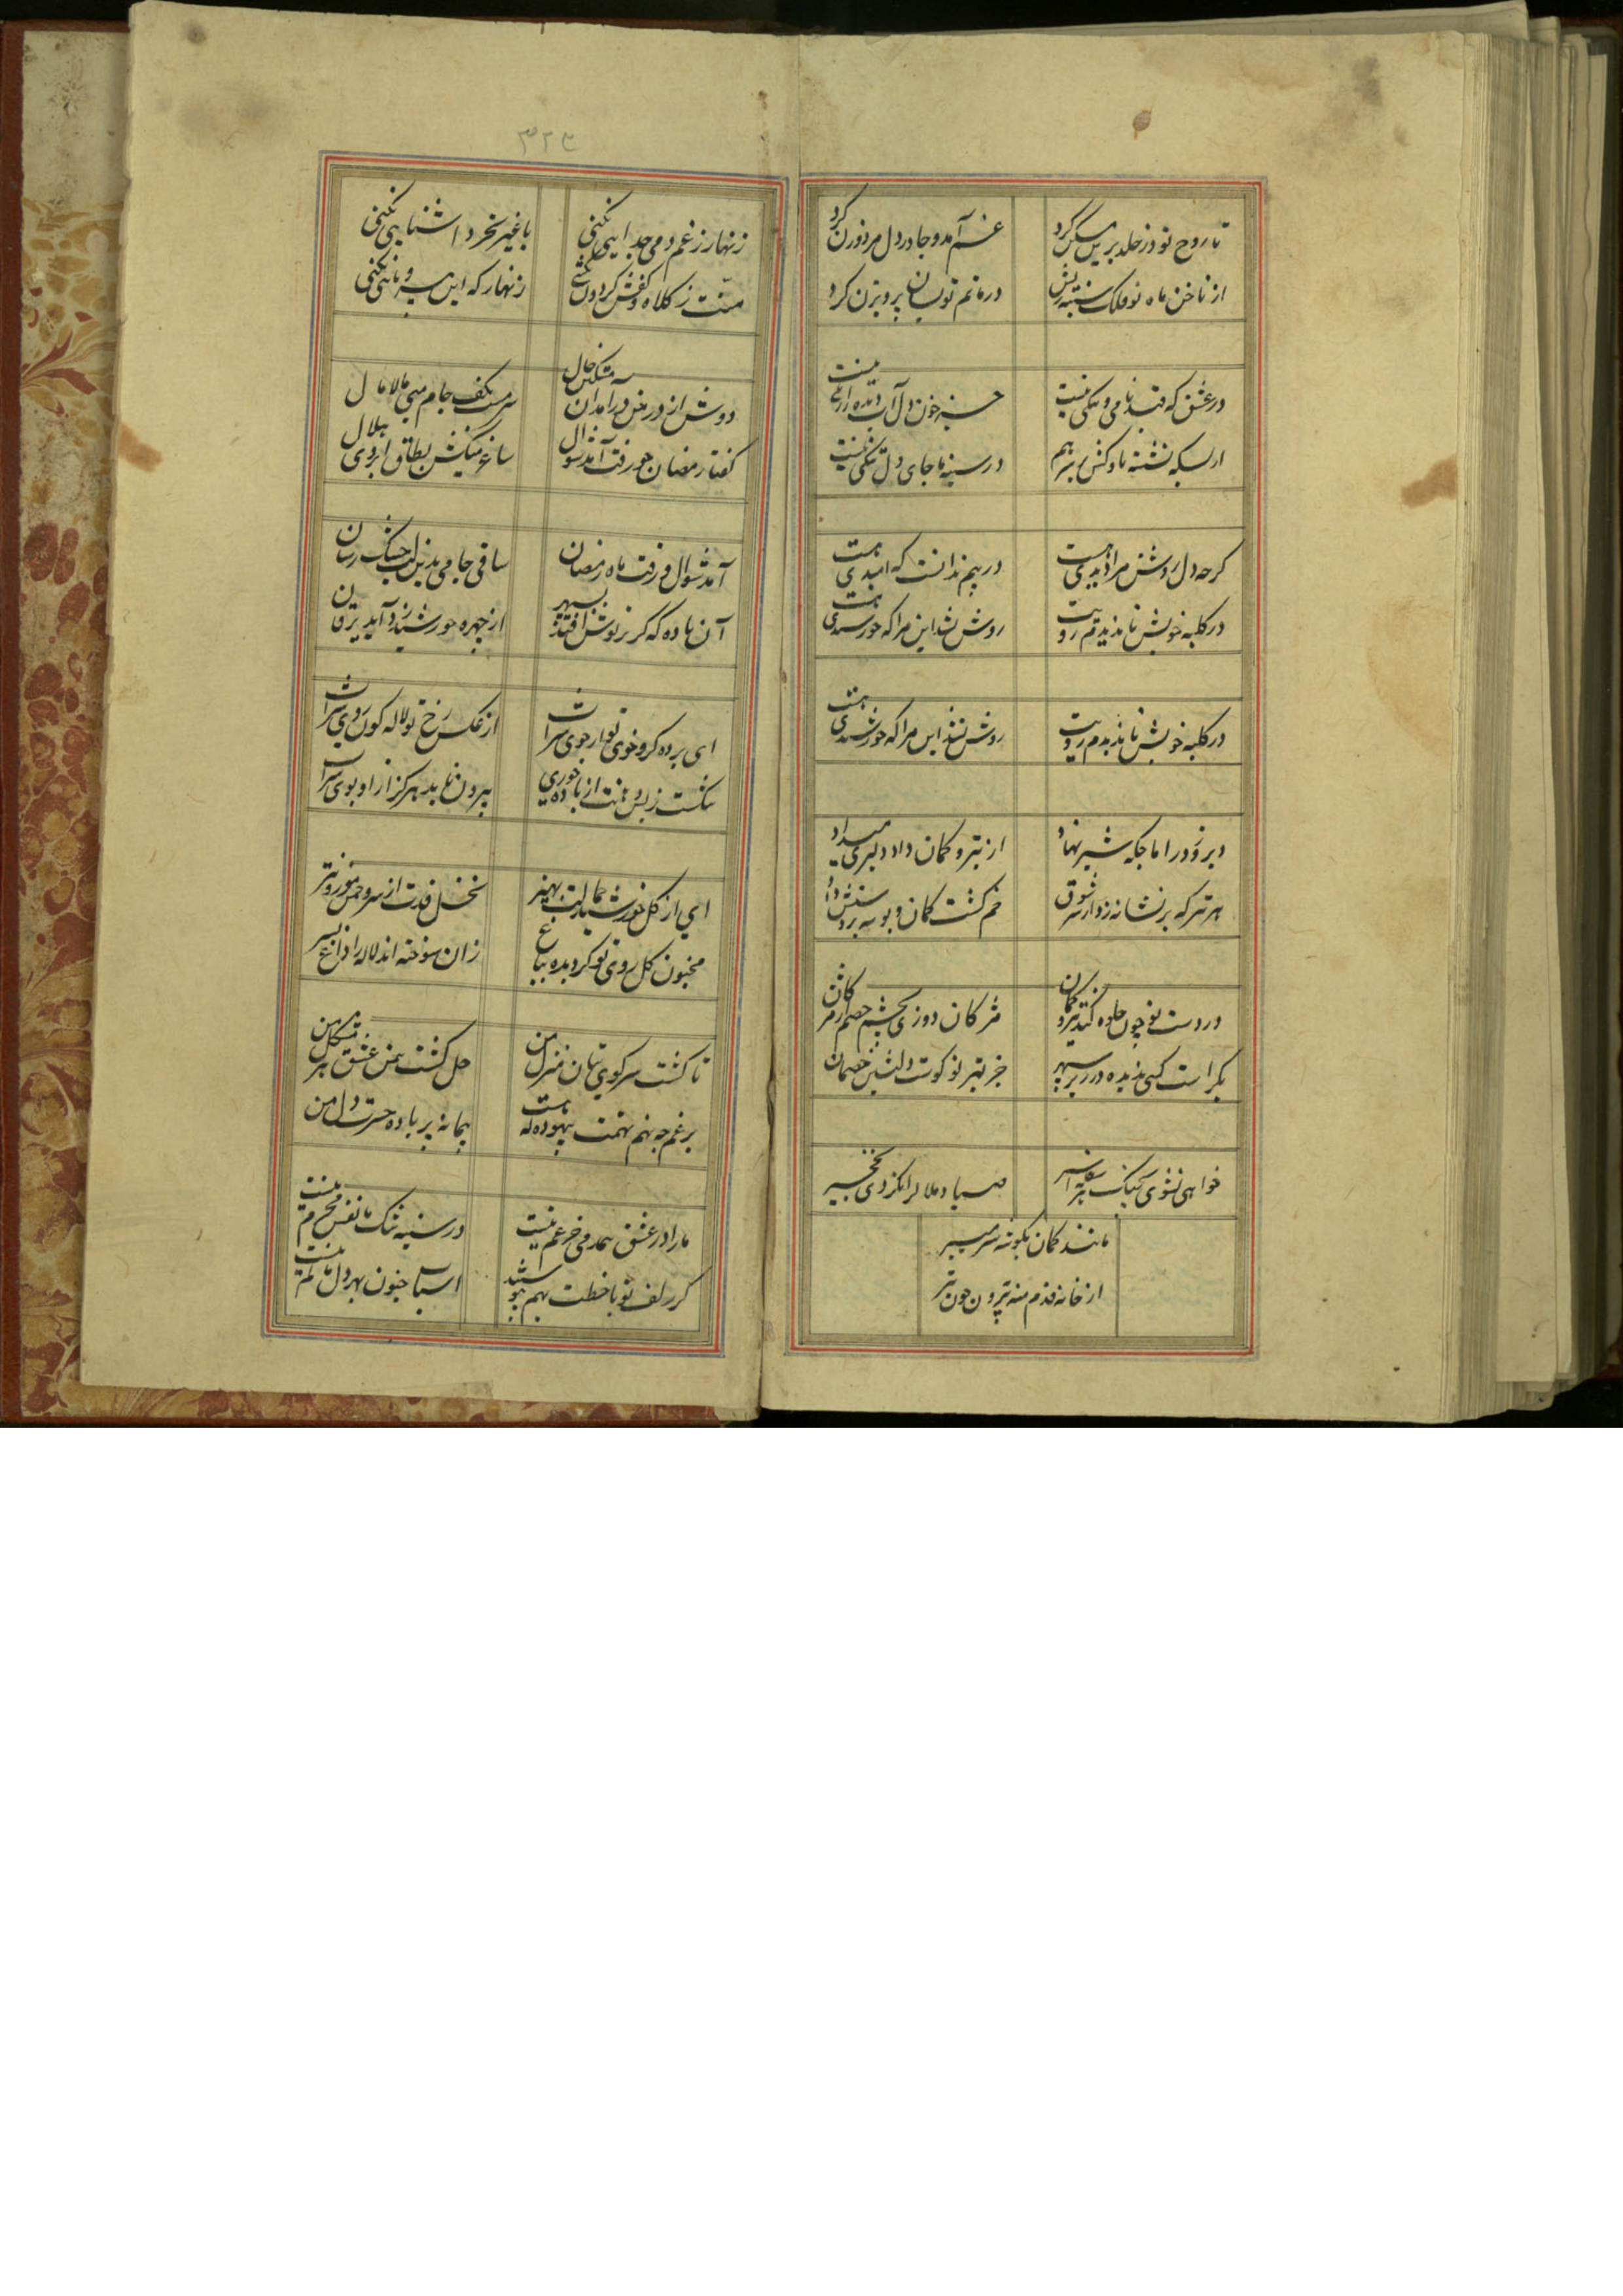 تا روح تو در خلد برین مسکن کرد
غم آمد و جا در دل مرد و زن کرد
از ناخن ماه نو فلک سینه ریش
در ماتم تو بسان پرویزن کرد
در عشق که قید نامی و ننگی نیست
جز خون دل آب دیده را رنگی نیست
از بسکه نشسته ناوکش بر سر هم
در سینه ما جای دل تنگی نیست
گر چه دل روشن مرا دیدی هست
در بیم ندانست که امیدی هست
در کلبه خویش تا ندیدم رویت
روشن نشد این مرا که خورشیدی هست
در کلبه خویش تا ندیدم رویت
روشن نشد این مرا که خورشیدی هست
دیروز در آماجگه شیر نهاد
از تیر و کمان داد دلبری میداد
هر تیر که بر نشانه زد از سر شوق
خم گشت کمان و بوسه بر دستش داد
در دست تو چون جلوه کند تیر و کمان
مژگان دوزی بچشم خصم
یکراست کسی ندیده در زیر سپهر
جز تیر تو کوست دلنشین خصمان
خواهی نشوی بچنگ
صیاد ملال را نگردی نخجیر
مانند کمان بگوشه سر میبر
از خانه قدم منه برون چون تیر
زنهار ز غم دمی جدایی نکنی
با غیر خرد آشنایی نکنی
منت ز کلاه و کفش گردون نکشی
زنهار که این بی سر و پایی نکنی
دوش از در من درآمد آن مشکین خال
سرمست بکف جام می مالامال
گفتا رمضان چو رفت آمد شوال
ساغر میکش بطاق ابروی هلال
آمد شوال و رفت ماه رمضان
ساقی جامی بدین لب خشک رسان
آن باده که گر پرتوش افتد بسپهر
از چهره خورشید زداید یرقان
ای برده گرو خوی تو از خوی شراب
از عکس رخ تو لاله گون روی شراب
بیرون ناید هرگز از او بوی شراب
ای از گل خورشید جمالت بهتر
نخل قدت از سرو چمن موزون تر
مجنون گل روی تو گردیده بباغ
زان سوخته اند لاله را داغ بسر
تا گشت سر کوی بتان منزل من
حل گشت بمن عشق تو هر مشکل من
بر غم چه نهم تهمت بیهوده که هست
پیمانه پر باده حسرت دل من
ما را در عشق همدمی جز غم نیست
در سینه تنگ ما نفس محرم نیست
گر زلف تو با خطت بهم
اسباب جنون بهر دل ما کم نیست